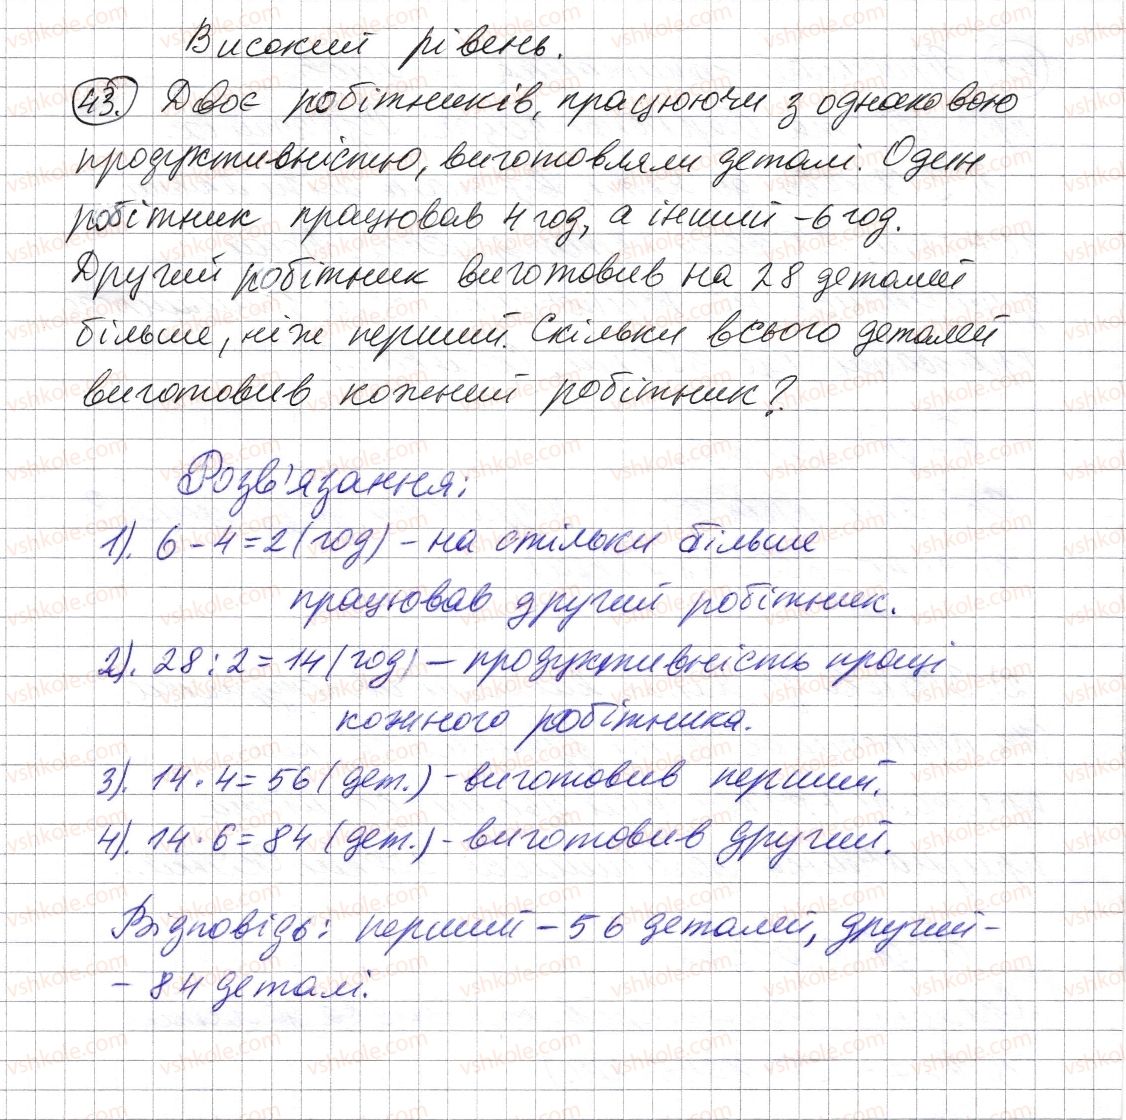 Високий рівень.
43. Двоє робітників, працюючи з однаковою
продуктивністю, виготовляли деталі. Один
робітник працював 4 год, а інший - 6 год.
Другий робітник виготовив на 28 деталей
більше, ніж перший. Скільки всього деталей
виготовив кожний робітник?
Розв'язання:
1). 6 - 4 = 2 (год) - на стільки більше
працював другий робітник.
2). 28 : 2 = 14 (год) - продуктивність праці
кожного робітника.
3). 14 · 4 = 56 (дет.) - виготовив перший.
4). 14 · 6 = 84 (дет.) - виготовив другий.
Відповідь: перший - 56 деталей, другий -
- 84 деталі.